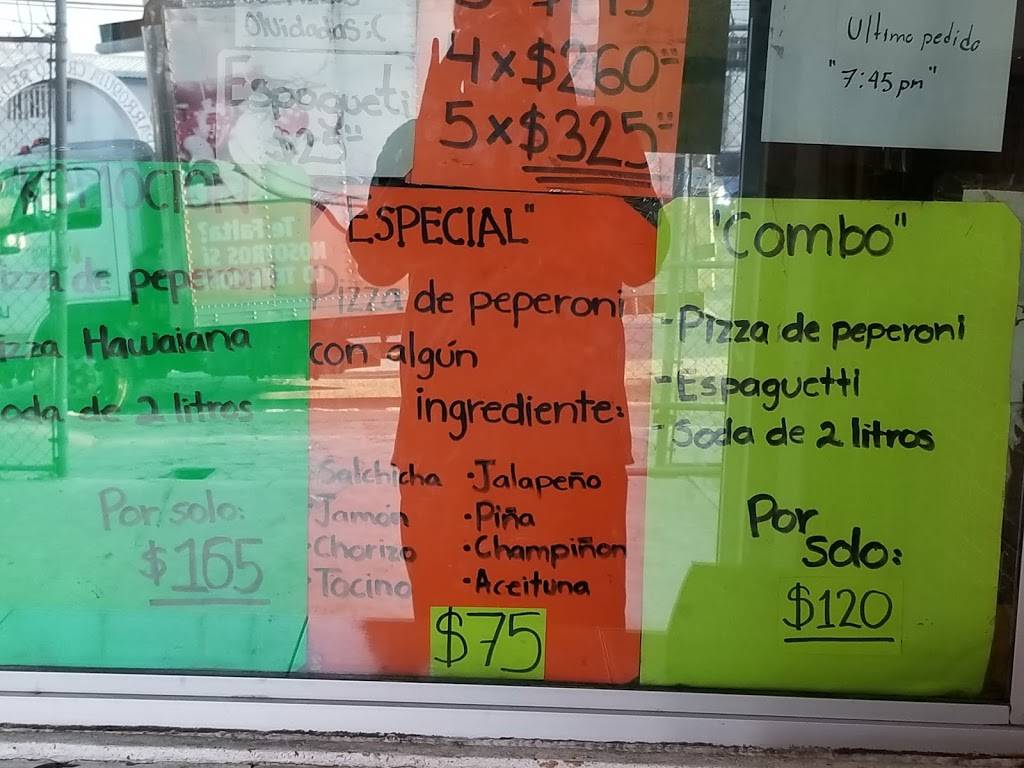 Olvidadas :(
Espagueti
$25
4 x $260
5 x $325
Ultimo pedido
"7:45 pm"
Pizza de peperoni
Pizza Hawaiana
Soda de 2 litros
Por solo:
$165
"ESPECIAL"
Pizza de peperoni
con algún
ingrediente:
·Salchicha
·Jamón
·Chorizo
·Tocino
·Jalapeño
·Piña
·Champiñon
·Aceituna
$75
"Combo"
-Pizza de peperoni
-Espaguetti
-Soda de 2 litros
Por
solo:
$120